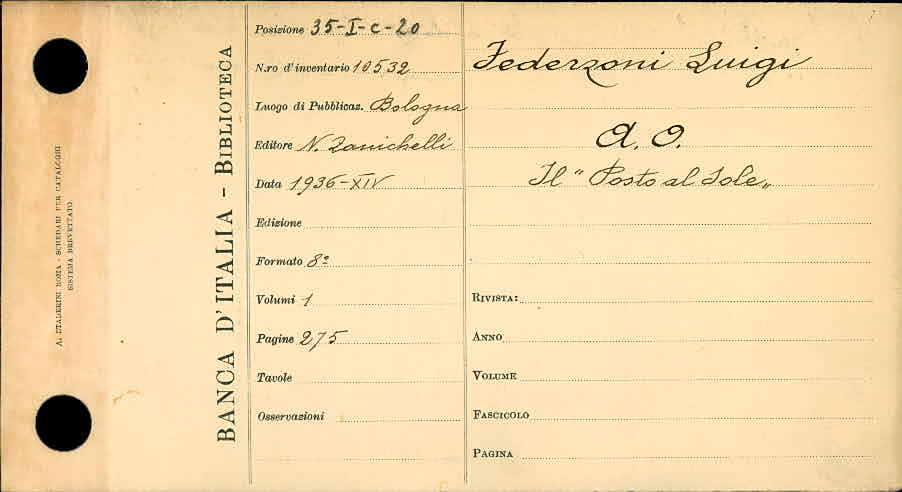 A. STADERINI ROMA - SCHEDARI PER CATALOGHI
SISTEMA BREVETTATO
BANCA D'ITALIA - BIBLIOTECA
Posizione 35-I-c-20
N.ro d'inventario 10532
Luogo di Pubblicaz. Bologna
Editore N. Zanichelli
Data 1936-XIV
Edizione
Formato 8º
Volumi 1
Pagine 275
Tavole
Osservazioni
Federzoni Luigi
A. O.
Il "Posto al Sole„
RIVISTA:
ANNO
VOLUME
FASCICOLO
PAGINA